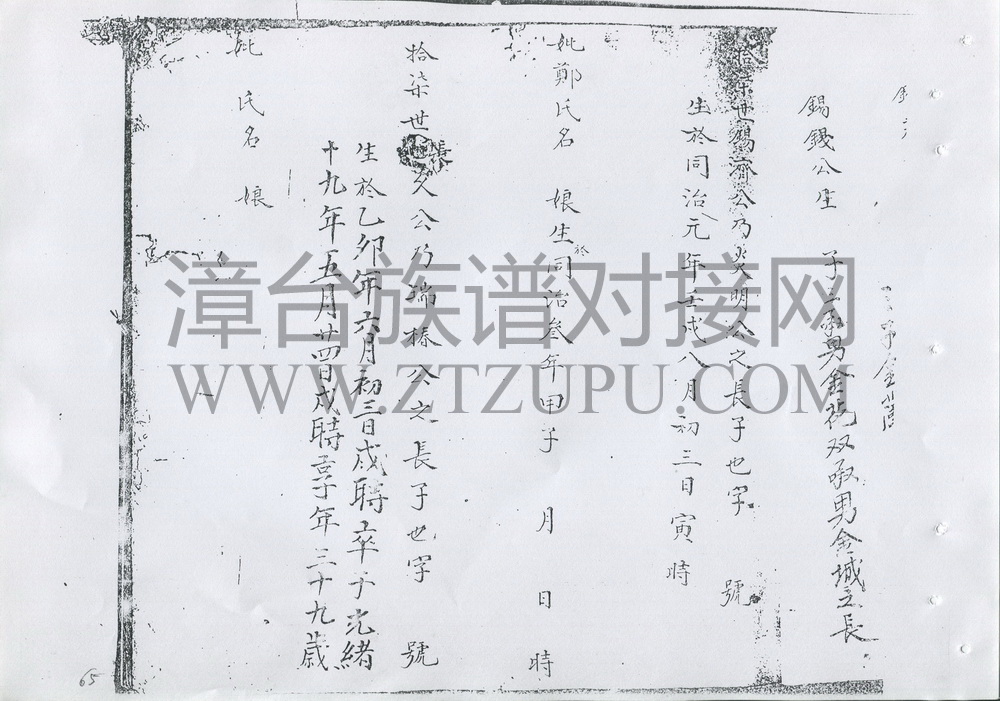 錫錢公生 子二承男金 双承男金城之長
拾柒世錫濟公乃炎明公之長子也字 號
生於同治元年壬戌八月初三日寅時
妣鄭氏名 娘生於同治叁年甲子 月 日時
拾柒世 久公乃瑞椿公之長子也字 號
生於乙卯年六月初三日戌時卒于光緒
十九年五月廿四日戌時享年三十九歲
妣 氏名 娘
漳台族谱对接网
WWW.ZTZUPU.COM
65